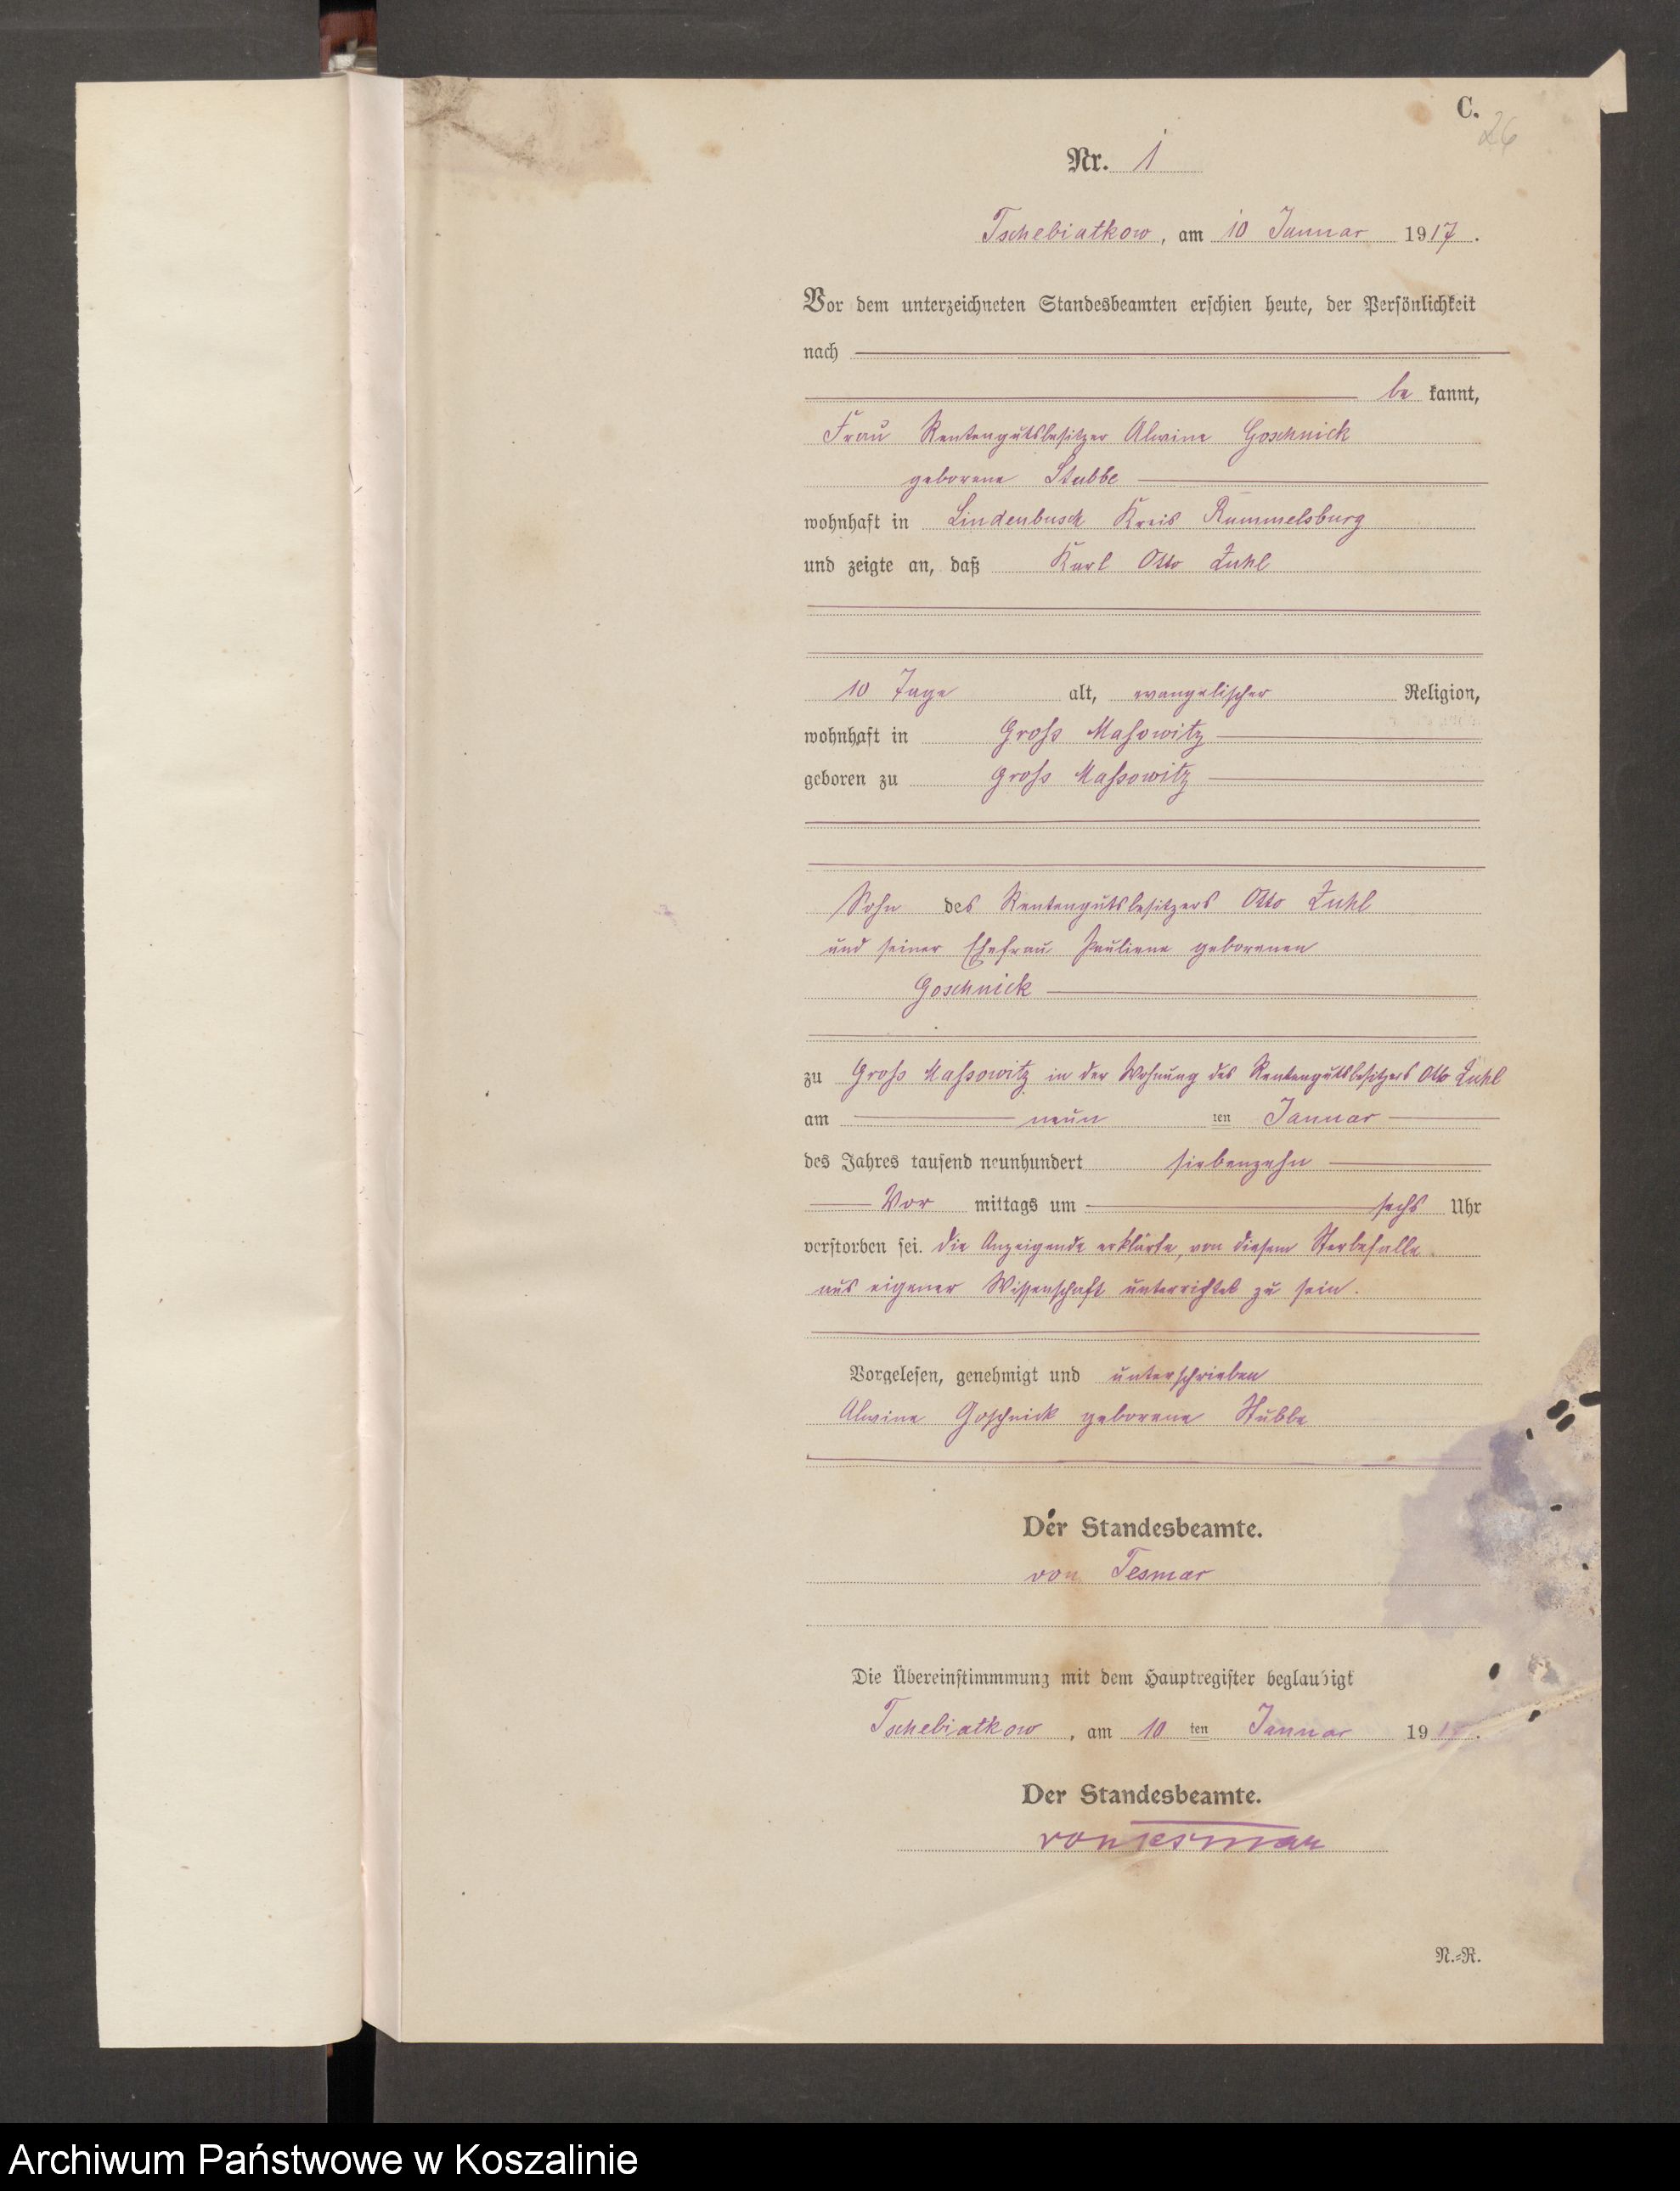 C.
26
Nr. 1
Tschebiatkow, am 10 Januar 1917.
Vor dem unterzeichneten Standesbeamten erschien heute, der Persönlichkeit
nach
be kannt,
Frau Rentengutsbesitzer Alwine Goschnick
geborene Stubbe
wohnhaft in Lindenbusch Kreis Rummelsburg
und zeigte an, daß Karl Otto Zuhl
10 Tage alt, evangelischer Religion,
wohnhaft in Gross Massowitz
geboren zu Gross Massowitz
Sohn des Rentengutsbesitzers Otto Zuhl
und seiner Ehefrau Pauliene geborenen
Goschnick
zu Gross Massowitz in der Wohnung des Rentengutsbesitzers Otto Zuhl
am neun ten Januar
des Jahres tausend neunhundert siebenzehn
Vor mittags um sechs Uhr
verstorben sei. Die Anzeigende erklärte, von diesem Sterbefalle
aus eigener Wissenschaft unterrichtet zu sein.
Vorgelesen, genehmigt und unterschrieben
Alwine Goschnick geborene Stubbe
Der Standesbeamte.
von Tesmar
Die Übereinstimmmung mit dem Hauptregister beglaubigt
Tschebiatkow, am 10 ten Januar 191.
Der Standesbeamte.
von Tesmar
N.=R.
Archiwum Państwowe w Koszalinie